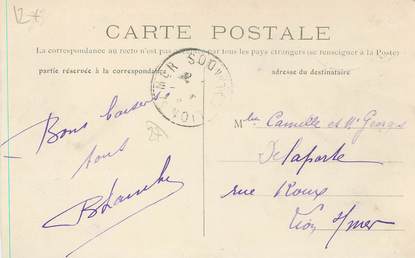 CARTE POSTALE
La correspondance au recto n'est pas acceptée par tous les pays étrangers (se renseigner à la Poste)
partie réservée à la correspondance
adresse du destinataire
Bons baisers
tous
Blanche
Mlles Camille et
Delaporte
rue Roux
Lion s/mer